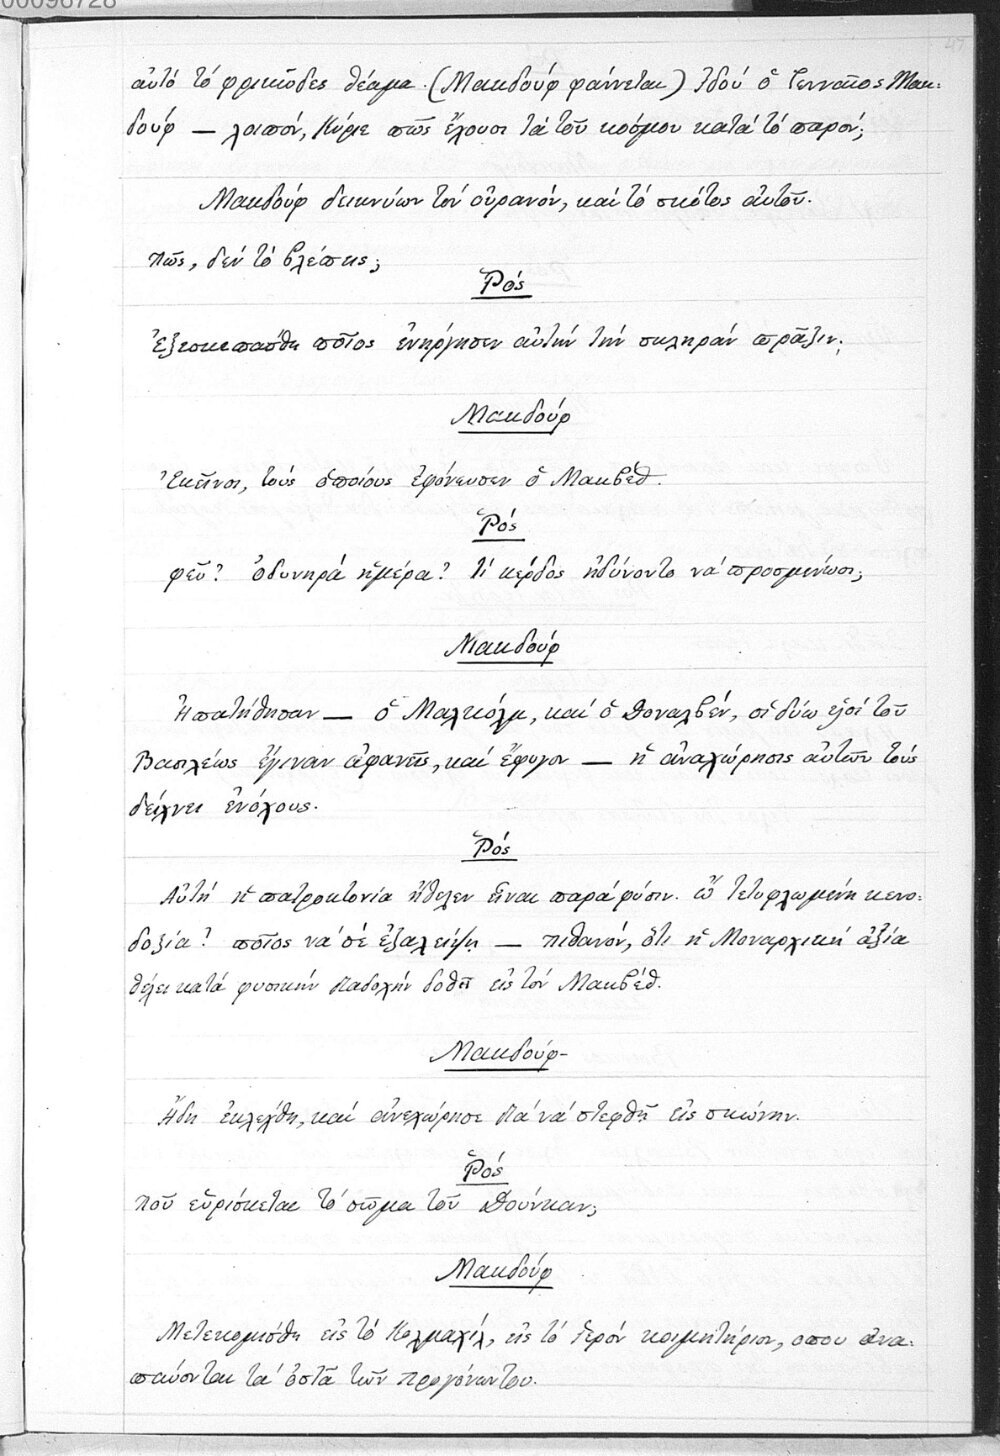 00096728
47
αὐτό τό φρικῶδες θέαμα. (Μακδούφ φαίνεται) Ἰδού ὁ Γενναῖος Μακ-
δούφ — λοιπόν, Κύριε πῶς ἔχουσι τά τοῦ κόσμου κατά τό παρόν;
Μακδούφ δεικνύων τόν οὐρανόν, καί τό σκότος αὐτοῦ.
πῶς, δέν τό βλέπεις;
Ῥός
Ἐξεσκεπάσθη ποῖος ἐνήργησεν αὐτήν τήν σκληράν πρᾶξιν;
Μακδούφ
Ἐκεῖνοι, τούς ὁποίους ἐφόνευσεν ὁ Μακβέθ.
Ῥός
φεῦ! ὀδυνηρά ἡμέρα! Τί κέρδος ἠδύνοντο νά προσμένωσι;
Μακδούφ
Ἠπατήθησαν — ὁ Μαλκόλμ, καί ὁ Δοναλβέν, οἱ δύω υἱοί τοῦ
Βασιλέως ἔγιναν ἀφανεῖς, καί ἔφυγον — ἡ ἀναχώρησις αὐτῶν τούς
δείχνει ἐνόχους.
Ῥός
Αὐτή ἡ πατροκτονία ἤθελεν εἶναι παρά φύσιν. ὦ τετυφλωμένη κενο-
δοξία! ποῖος νά σέ ἐξαλείψῃ — πιθανόν, ὅτι ἡ Μοναρχική ἀξία
θέλει κατά φυσικήν διαδοχήν δοθῆ εἰς τόν Μακβέθ.
Μακδούφ
Ἤδη ἐκλέχθη, καί ἀνεχώρησε διά νά στεφθῆ εἰς σκώνην.
Ῥός
Ποῦ εὑρίσκεται τό σῶμα τοῦ Δούνκαν;
Μακδούφ
Μετεκομίσθη εἰς τό Κολμαχίλ, εἰς τό ἱερόν κοιμητήριον, ὁπου ἀνα-
παύονται τά ὀστᾶ τῶν προγόνων του.